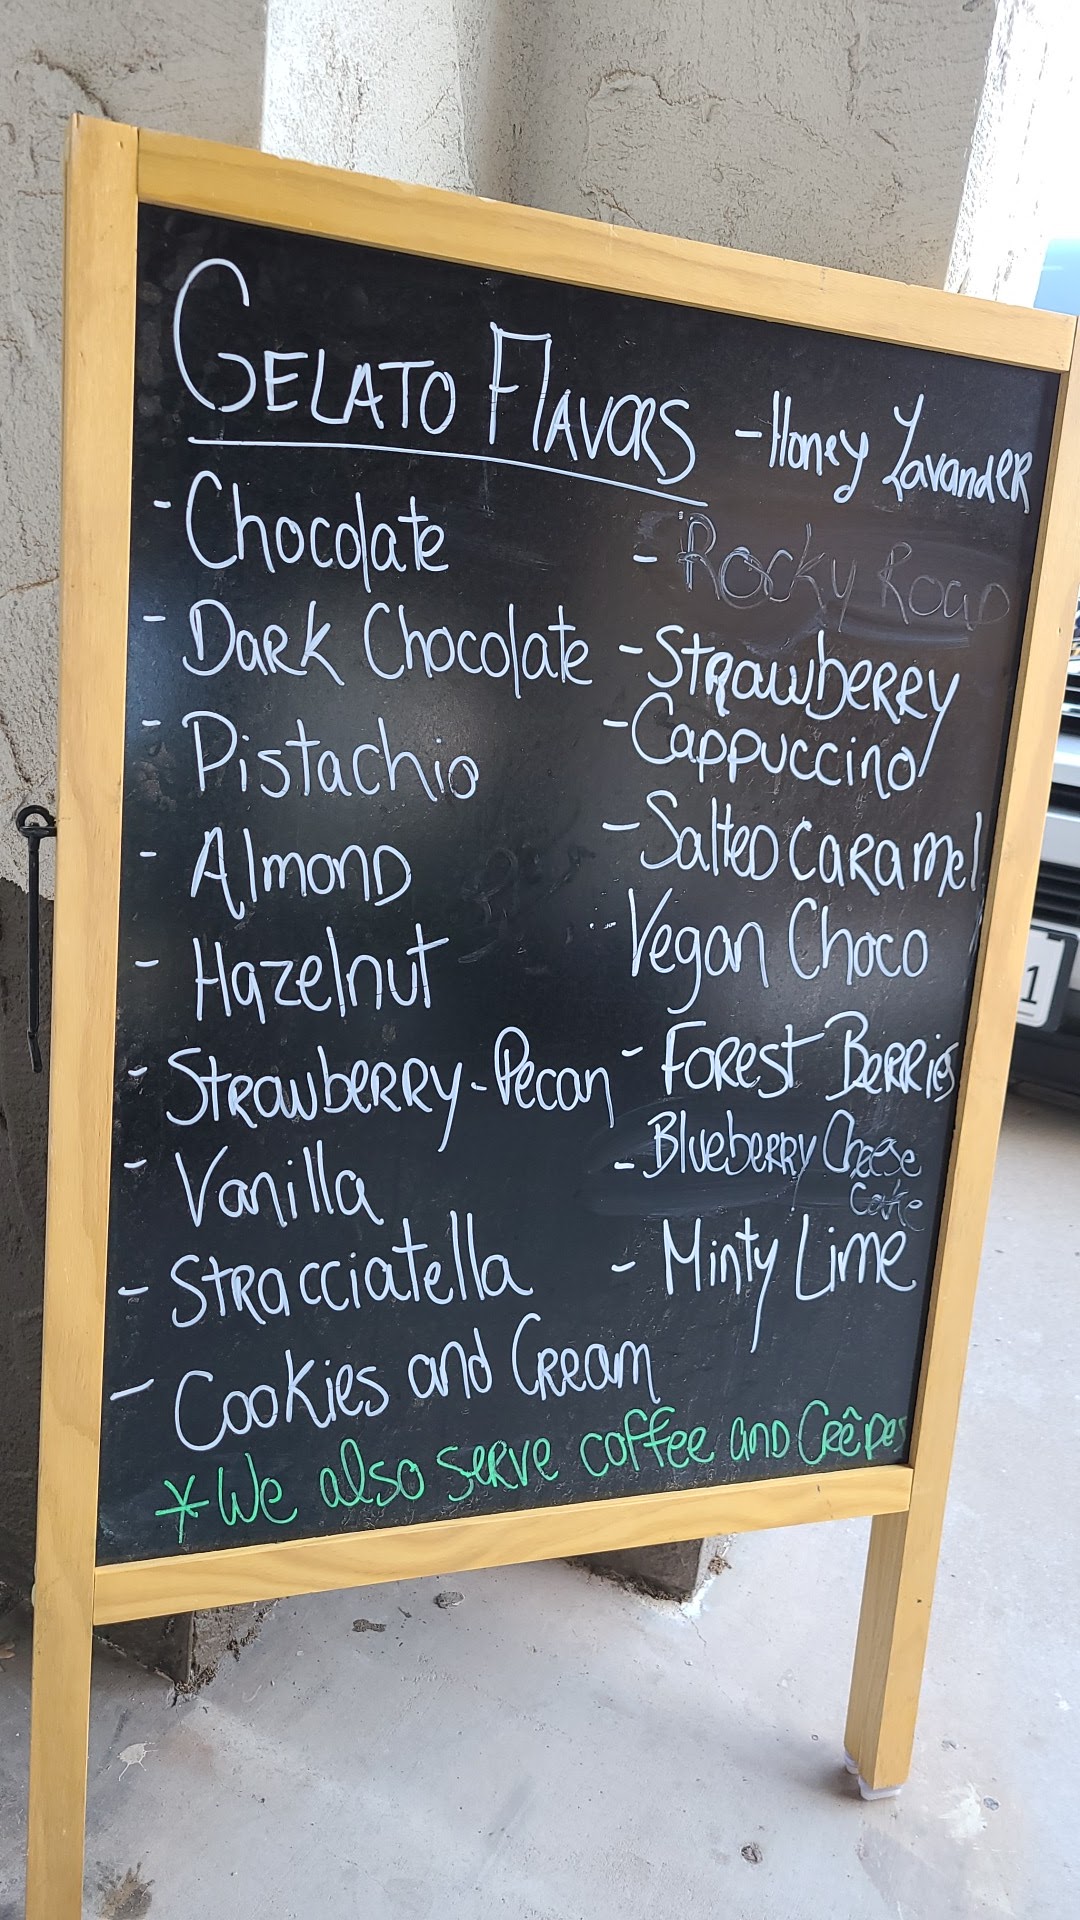 GELATO FlAVORS
- Chocolate
- DaRK Chocolate
- Pistachio
- AlmonD
- Hazelnut
- StRawbeRRy-Pecan
- Vanilla
- StRacciatella
- CooKies and CReam
- Honey LavandeR
- Rocky RoaD
- StRawbeRRy
- Cappuccino
- SalteD CaRamel
- Vegan Choco
- FoRest BeRRies
- BluebeRRy Cheese
Cake
- Minty Lime
*We also seRve coffee anD CRêpes
1